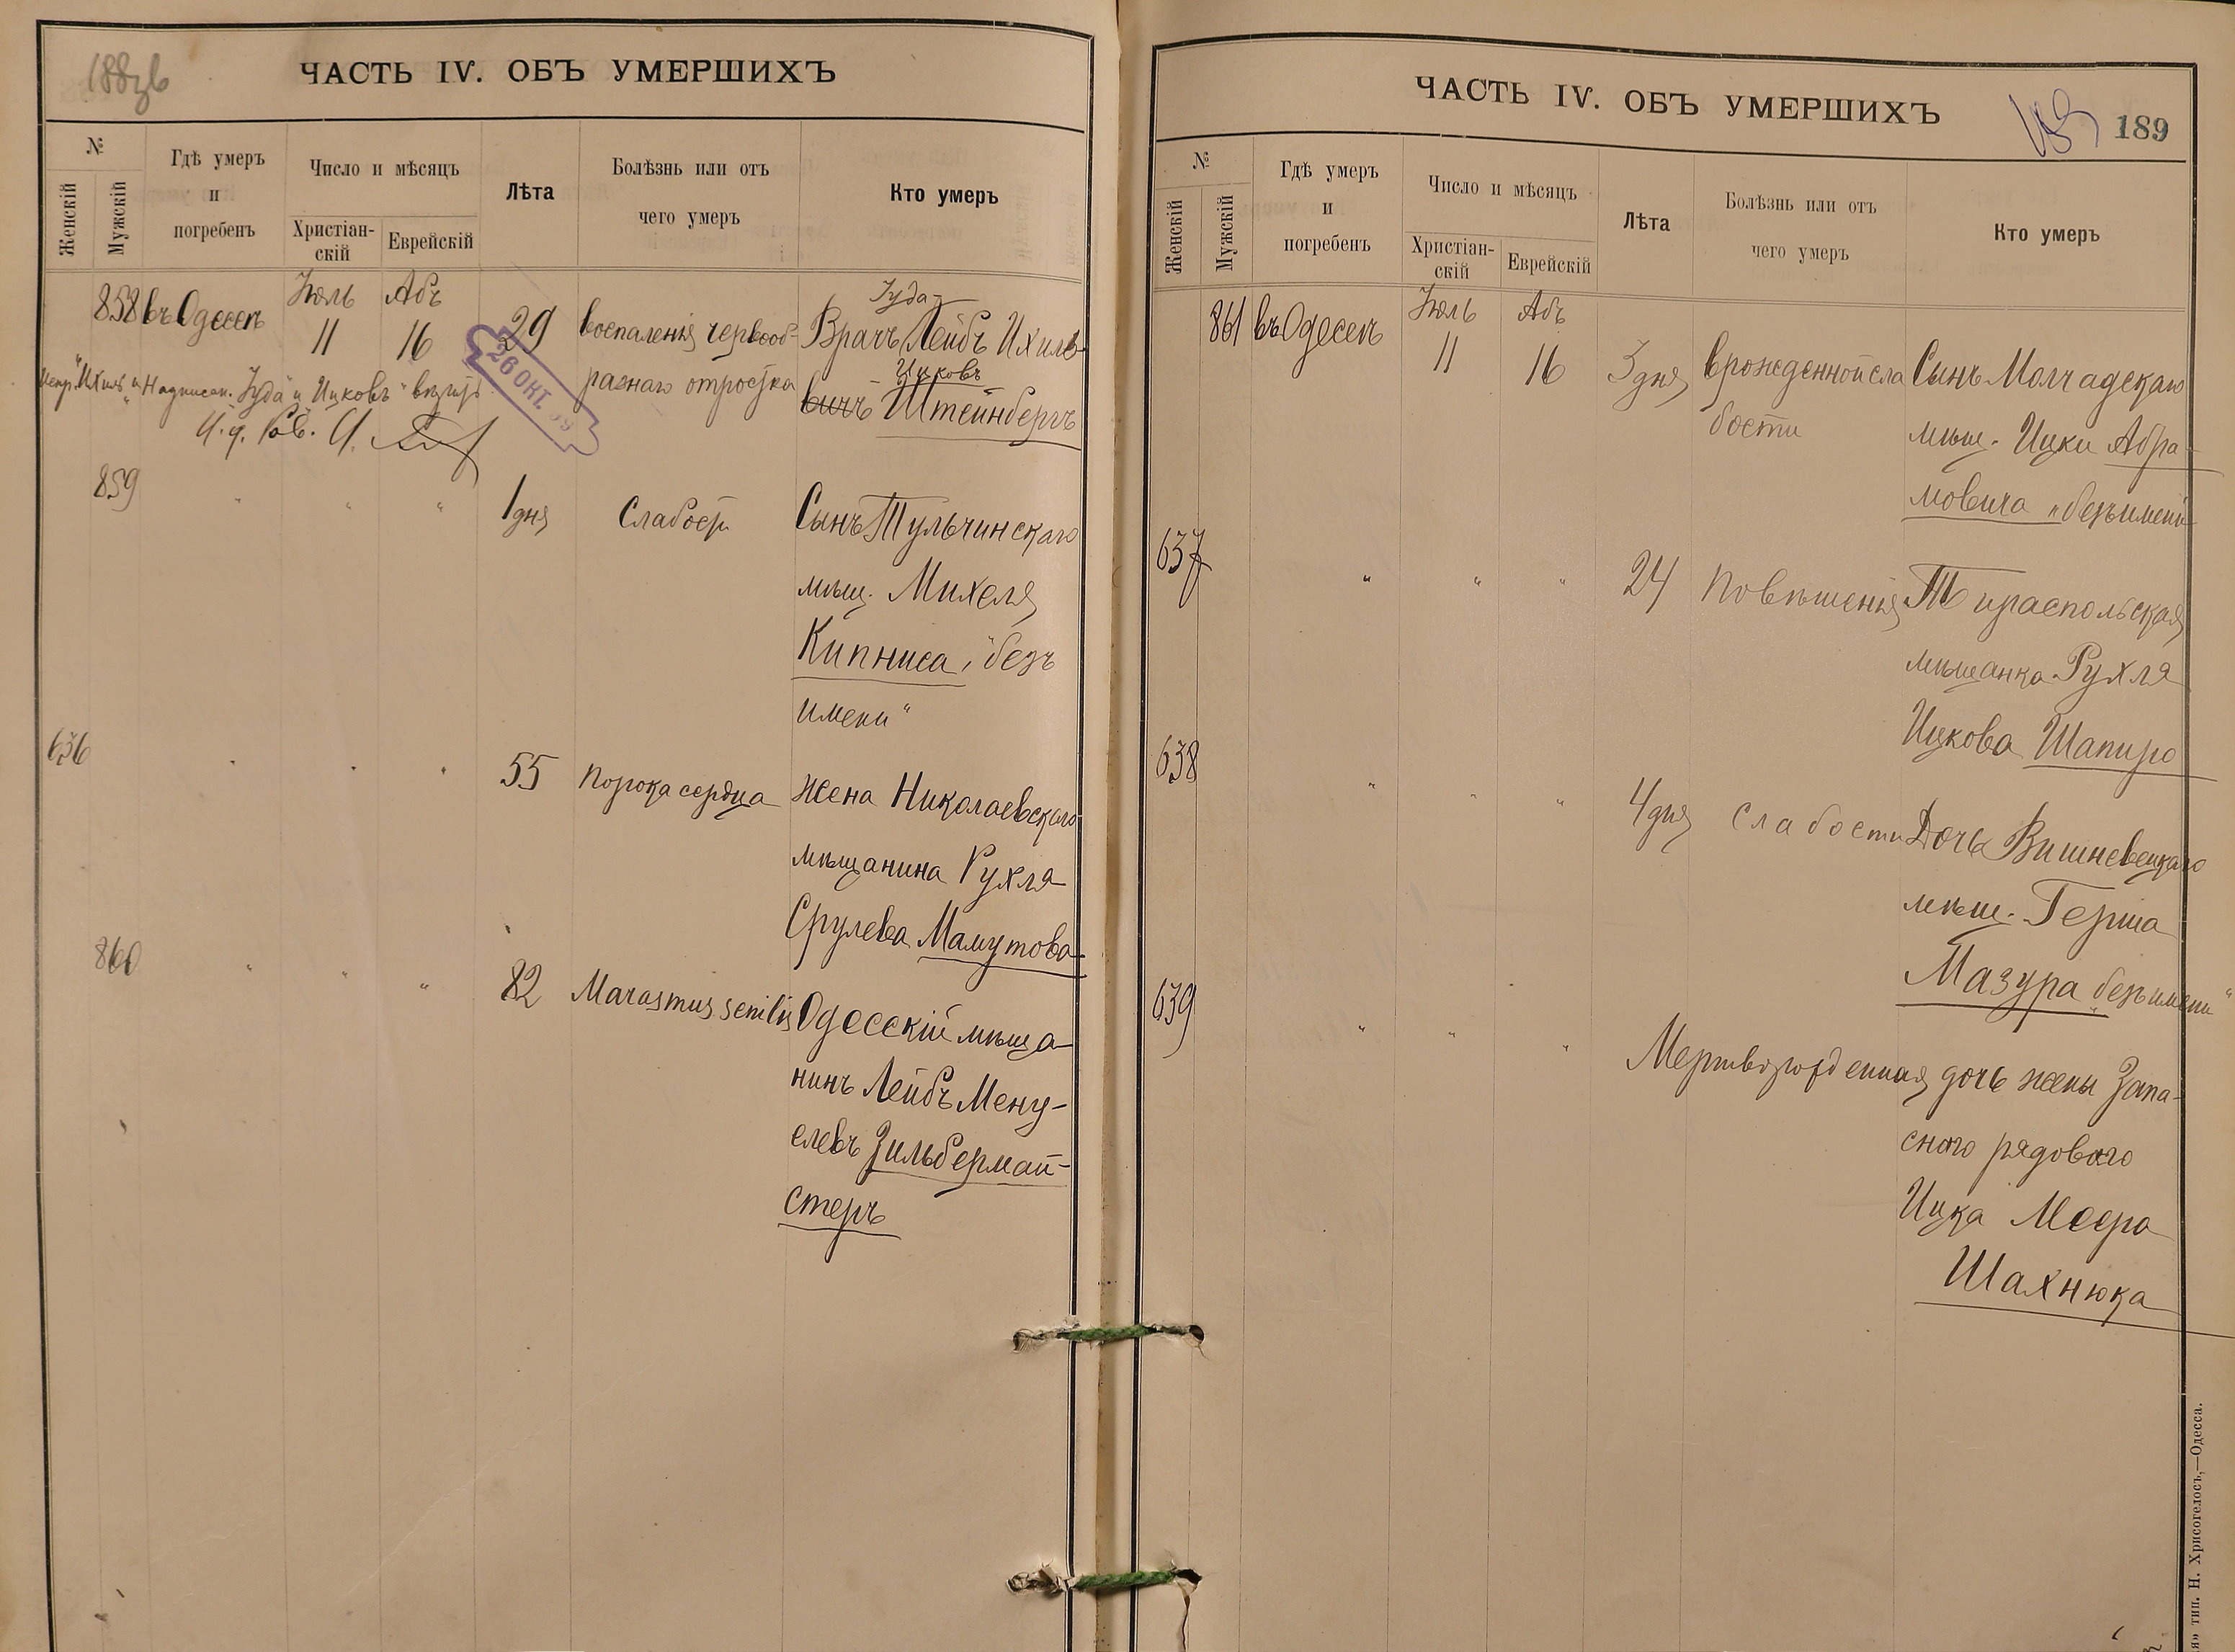 ЧАСТЬ IV. ОБЪ УМЕРШИХЪ
№
Женскій
Мужскій
Гдѣ умеръ
и
погребенъ
Число и мѣсяцъ
Христіан-
скій
Еврейскій
Лѣта
Болѣзнь или отъ
чего умеръ
Кто умеръ
858 въ Одессѣ
Іюль
11
Абъ
16
29
воспаленія червооб-
разнаго отростка
Іуда
Врачъ Лейбъ Ихиль-
Ицковъ
вичъ Штейнбергъ
26 ОКТ.
Испр. "Ихиль и Надписан. "Іуда" и Ицковъ"
И. д. Рав.
859
"
"
"
1 дня
Слабост.
Сынъ Тульчинскаго
мѣщ. Михеля
Кипниса, "безъ
имени"
636
"
"
"
55
Порока сердца
Жена Николаевскаго
мѣщанина Рухля
Срулева Мамутова
860
"
"
"
82
Marasmus senilis
Одесскій мѣща-
нинъ Лейбъ Мену-
елевъ Зильбермай-
стеръ
ЧАСТЬ IV. ОБЪ УМЕРШИХЪ
189
189
№
Женскій
Мужскій
Гдѣ умеръ
и
погребенъ
Число и мѣсяцъ
Христіан-
скій
Еврейскій
Лѣта
Болѣзнь или отъ
чего умеръ
Кто умеръ
861 въ Одессѣ
Іюль
11
Абъ
16
3 дня
врожденной сла
бости
Сынъ Молчадскаго
мѣщ. Ицки Абра-
мовича "безъимени"
637
"
"
"
24
Повѣшенія
Тираспольская
мѣщанка Рухля
Ицкова Шапиро
638
"
"
"
4 дня
Слабости
Дочь Вишневецкаго
мѣщ. Герша
Мазура "безъимени"
639
"
"
"
Мертворожденная дочь жены Запа-
снаго рядового
Ицка Меера
Шахнюка
тип. Н. Хрисогелосъ,—Одесса.